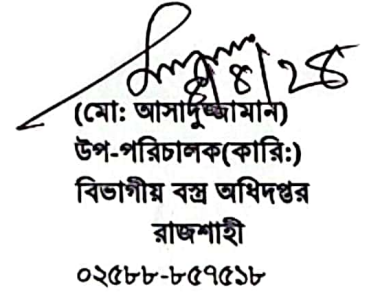 ৪/৪/২৪
(মো: আসাদুজ্জামান)
উপ-পরিচালক(কারি:)
বিভাগীয় বস্ত্র অধিদপ্তর
রাজশাহী
০২৫৮৮-৮৫৭৫১৮